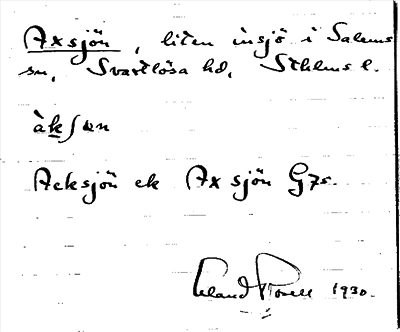 Axsjön, liten insjö i Salems
sn, Svartlösa hd, Sthlms l.
àkʃøn
Acksjön ek Axsjön Gzs.
Erland Rosell 1930.